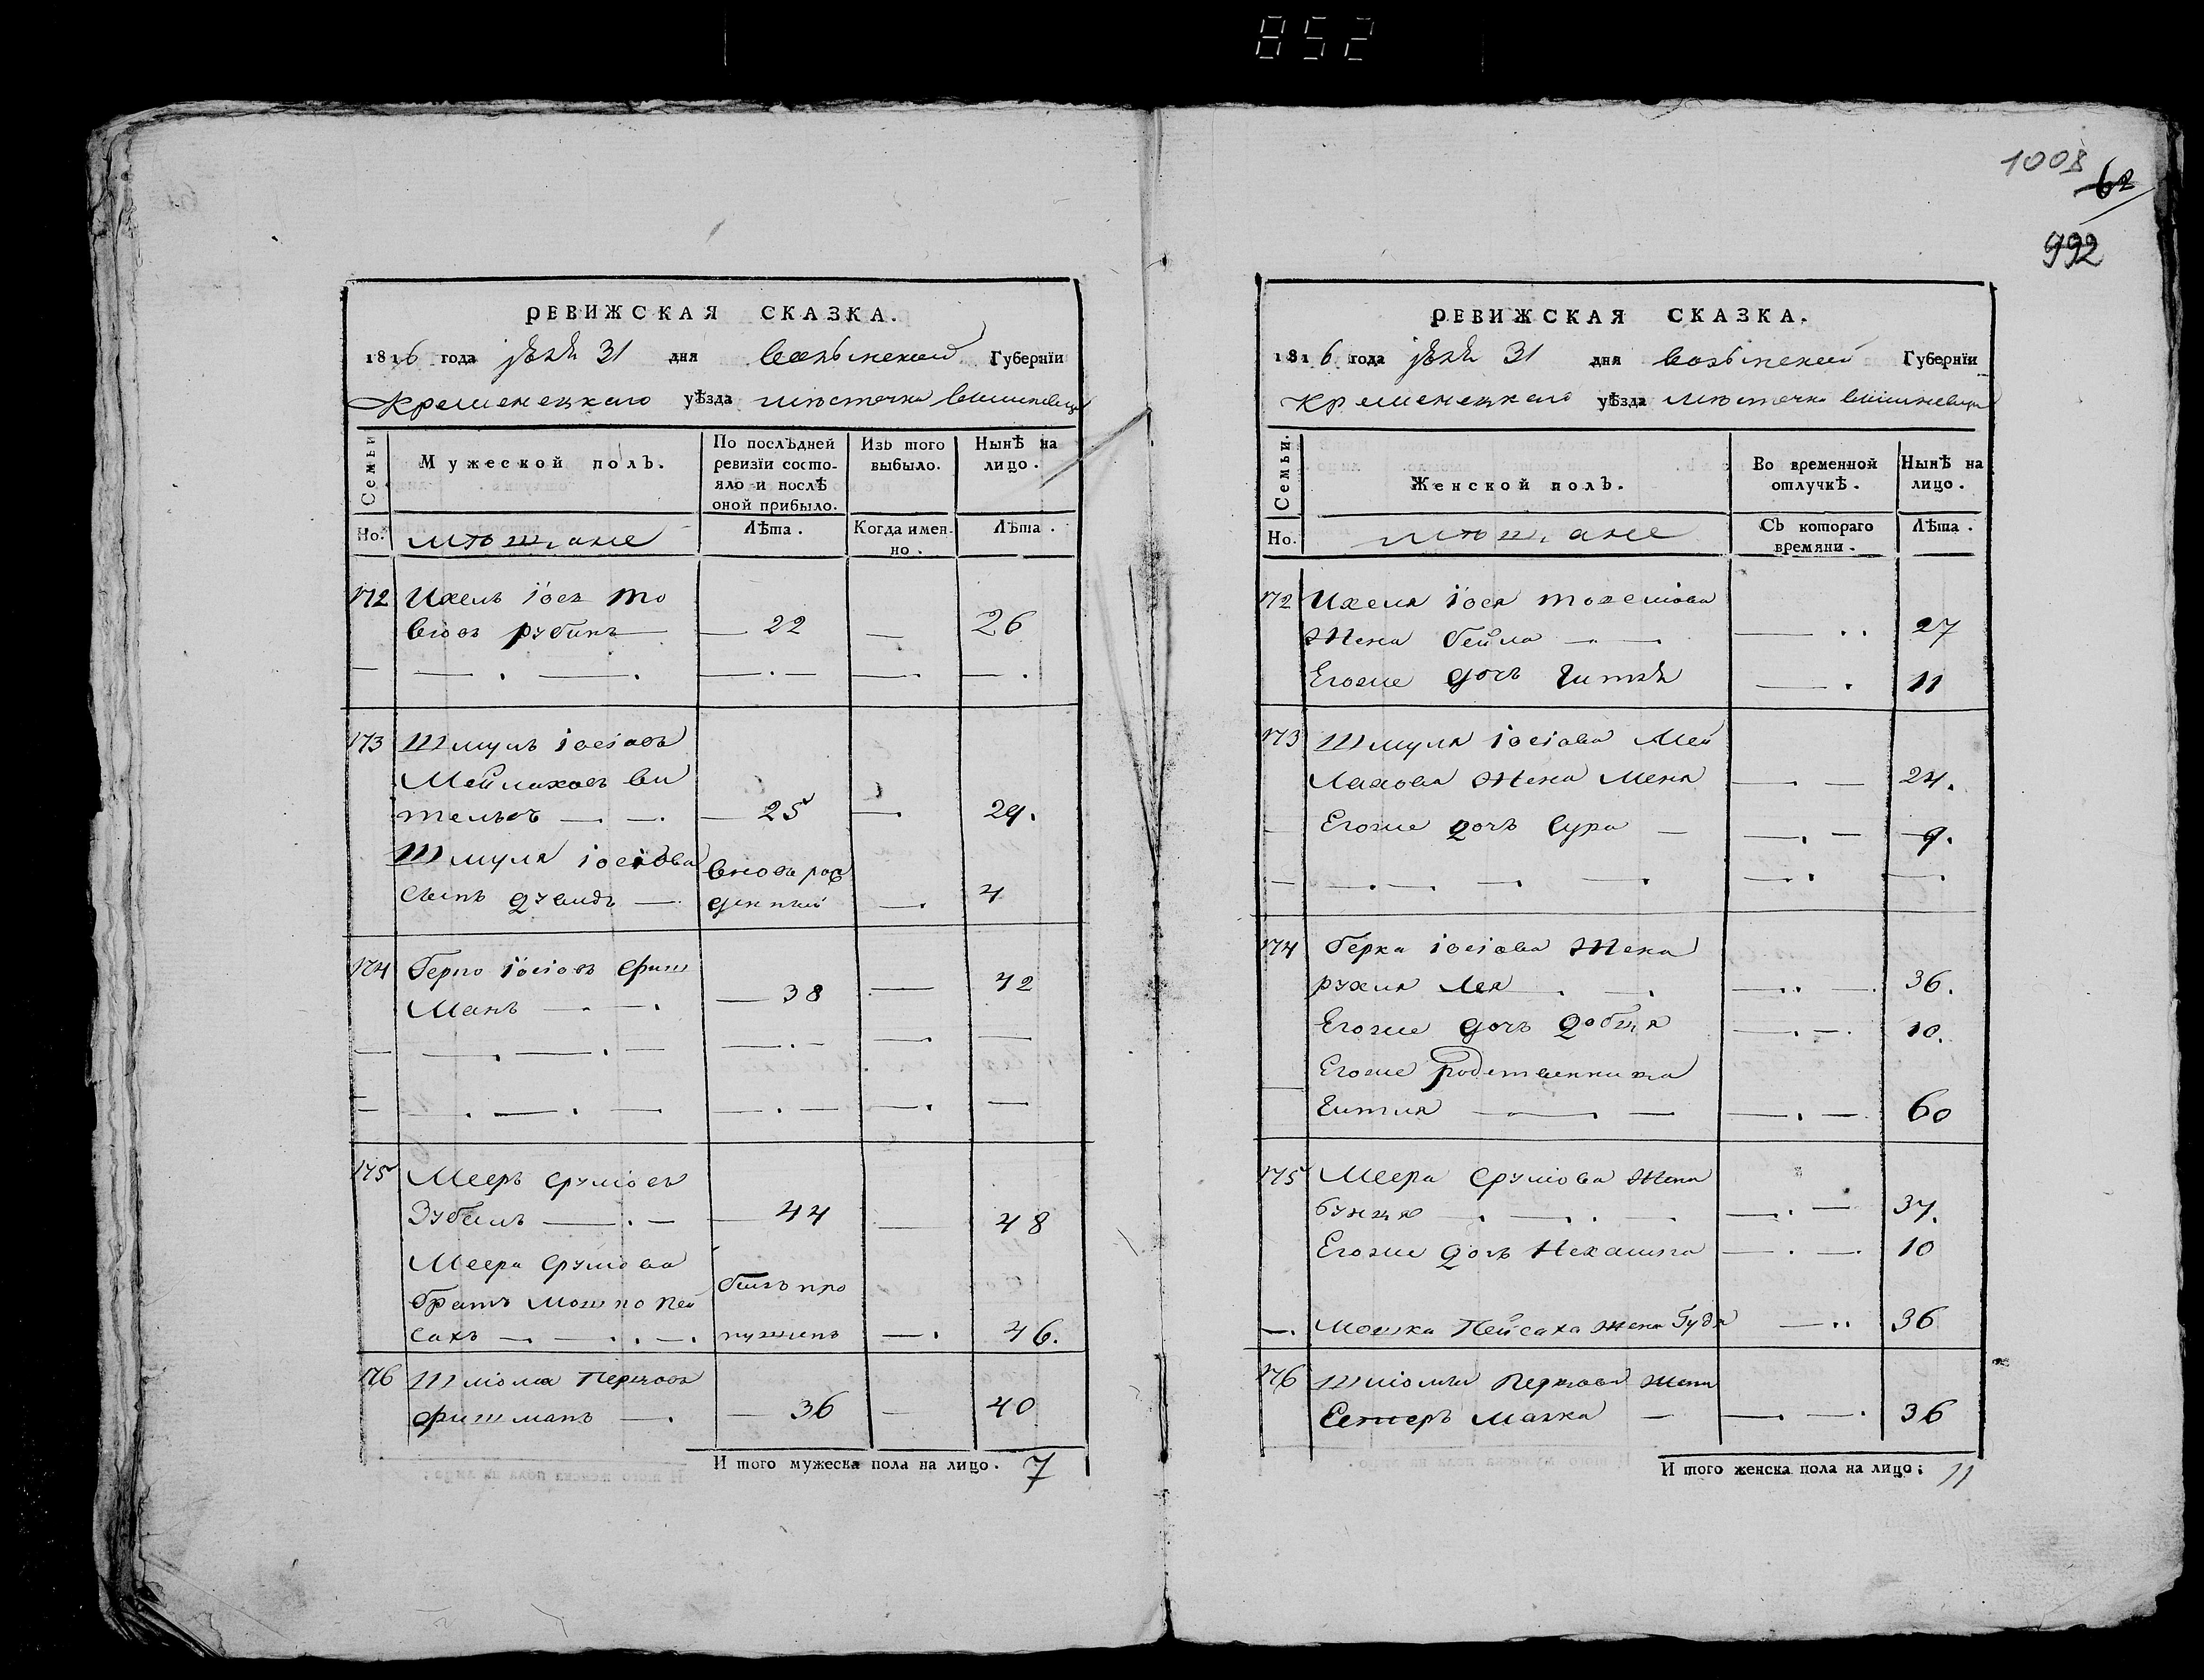 852
1008
62
992
РЕВИЖСКАЯ СКАЗКА.
1816 года 31 дня волынской Губернїи
Кременецкаго уѣзда мѣстечка вишневца
Семьи
Мужеской полъ.
По послѣдней ревизїи состо-
яло и послѣ
оной прибыло.
Изъ того
выбыло.
Нынѣ на
лицо.
Но.
мѣщане
Лѣта.
Когда имен-
но.
Лѣта.
172 Ихель иось
рубинъ — 22 — 26
173 Шмуль иосіовъ
Мейлаховъ ви
тельъ — 25 — 29.
Шмуля иосіова вновь рож
сынъ дувидъ — денный — 4
174 Берко иосіовъ фиш
манъ — 38 — 42
175 Мееръ срулiовъ
Зубаль — 44 — 48
Меера срулiова
братъ мошко пей былъ про
сахъ — пущенъ — 46.
176 Шлiома Перцовъ
фишманъ — 36 — 40
И того мужеска пола на лицо. 7
РЕВИЖСКАЯ СКАЗКА.
1816 года 31 дня волынской Губернїи
Кременецкаго уѣзда мѣстечка вишневца
Семьи.
Женской полъ.
Во временной
отлучкѣ.
Нынѣ на
лицо.
Но.
мѣщане
Съ котораго
времяни.
Лѣта.
172 Ихеля иося
жена бейла — 27
Егоже дочь гитля — 11
173 Шмуля иосіова Мей
лахова жена меня — 24.
Егоже дочь сура — 9.
174 берка иосіова жена
рухля лея — 36.
Егоже дочь добця — 10.
Егоже родственница
гитля — 60
175 Меера срулiова жена
бунця — 37.
Егоже дочь Нехамка — 10
Мошка Пейсаха жена Гудя — 36
176 Шлiомы Перцова жена
Естеръ малка — 36
И того женска пола на лицо: 11